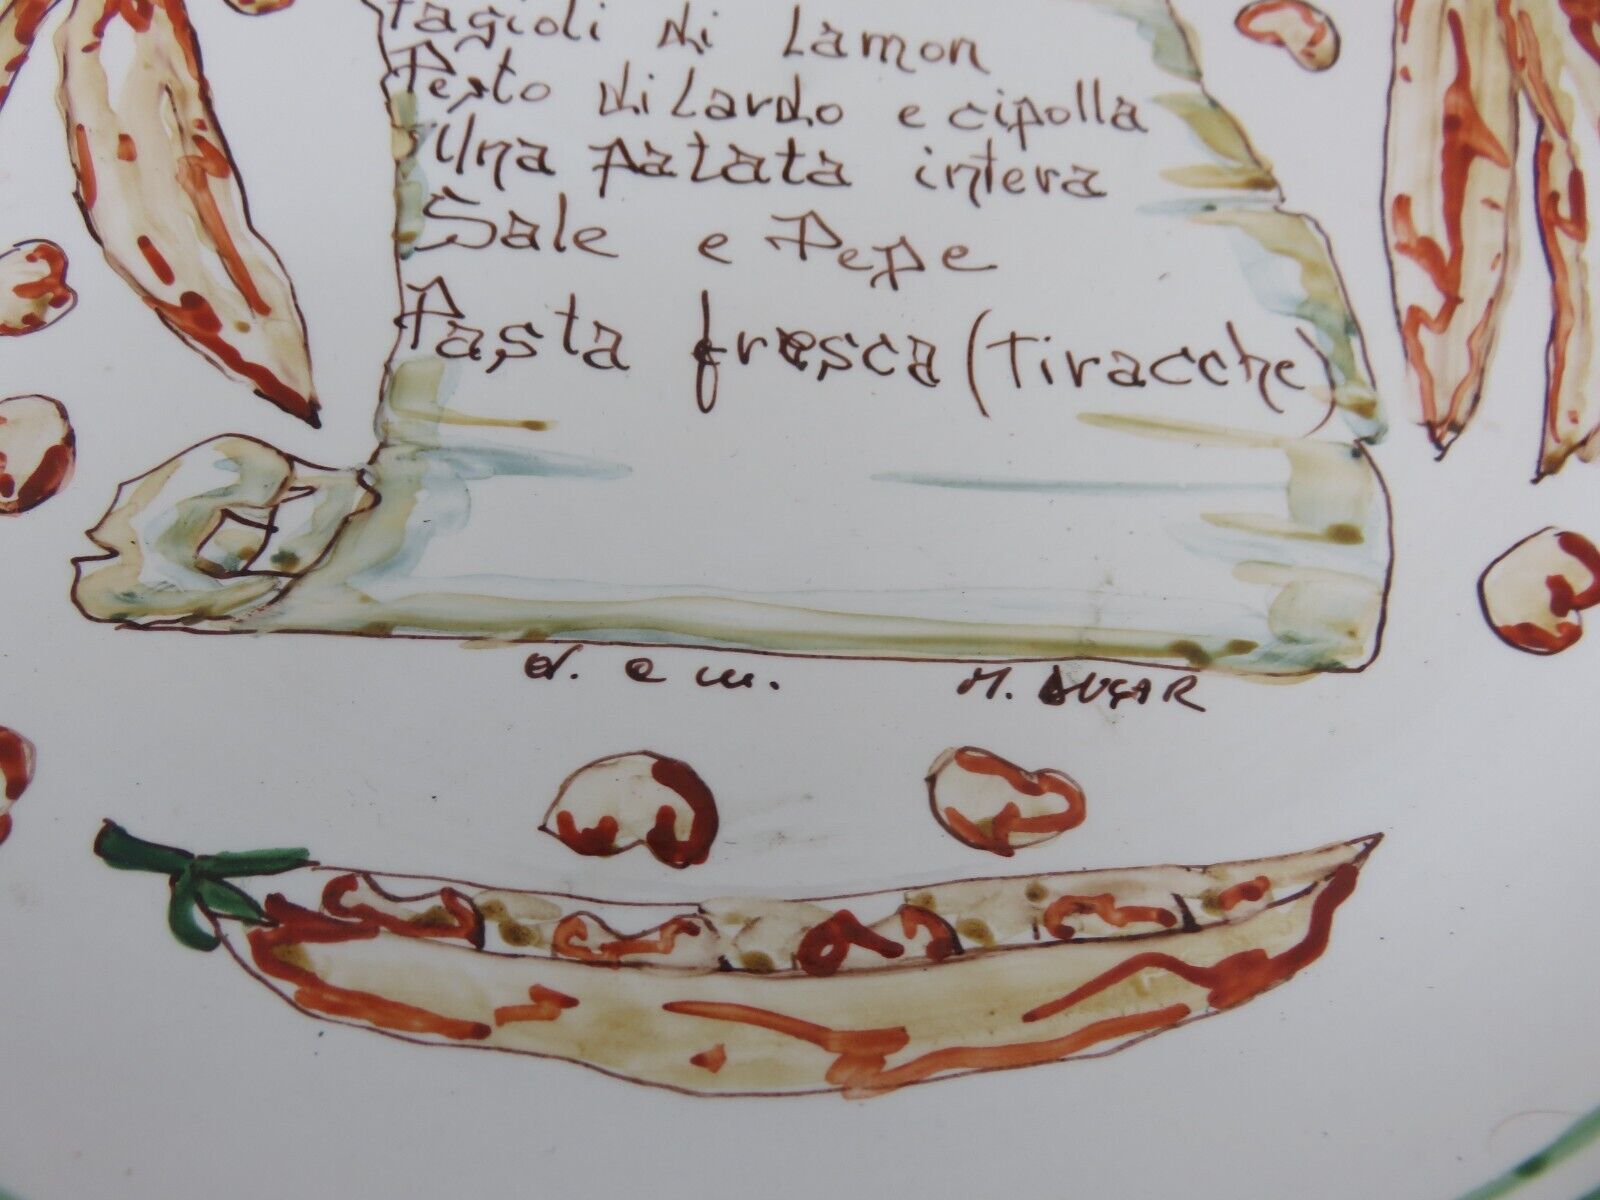 fagioli di Lamon
Pesto di Lardo e cipolla
Una patata intera
Sale e Pepe
Pasta fresca (Tiracche)
e m. M.